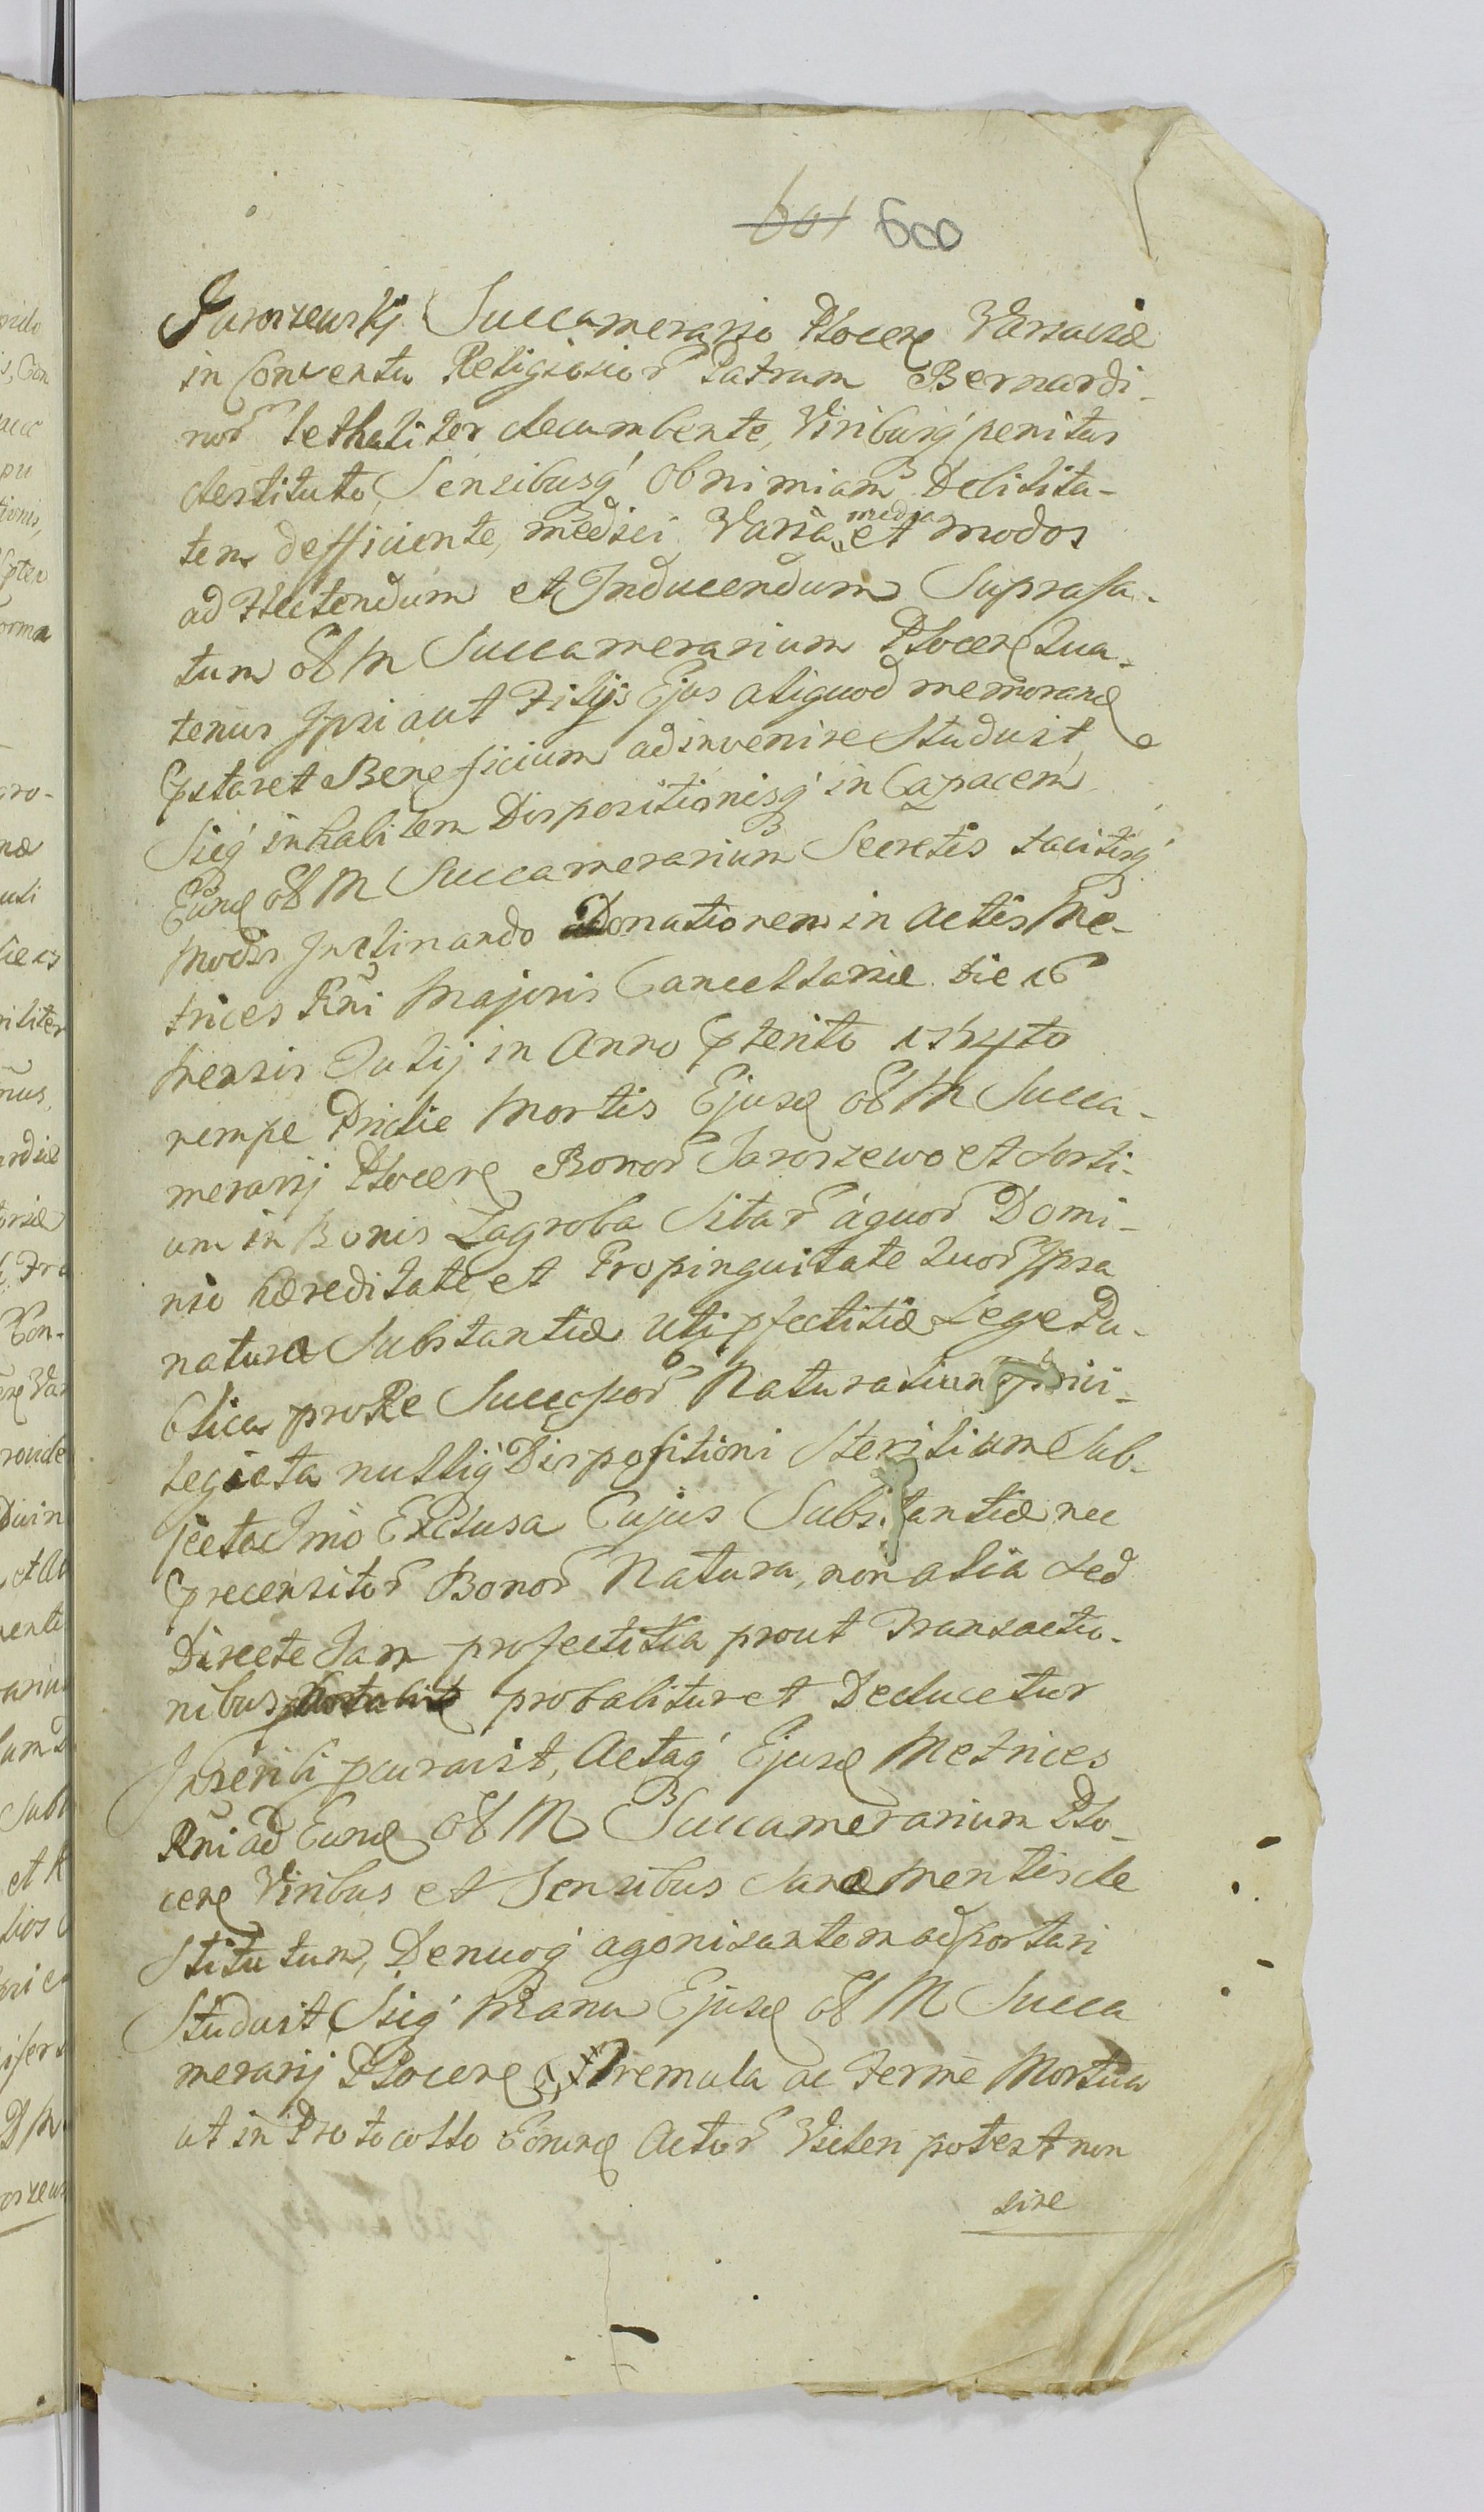 601 600
Jaroszewskj Succamerario Ploceñ Varsaviæ
in Conventu Religiosior Patrum Bernardi-
nor lethaliter decumbente, Viribusq́ penitus
destituto, Sensibusq́ ob nimiam Debilita-
tem defficiente, medici Varia media et modos
ad Flectendum et Inducendum Suprafa-
tum ol M Succamerarium Ploceñ Qua-
tenus Ipsi aut Filijs Ejus aliquod memorand
Pstaret Beneficium adinvenire Studuit,
Sicq́ inhabilem Dispositionisq́ in Capacem
Eund ol M Succamerarium Secretis tacitisq́
modis Inclinando Donationem in Actis Me-
trices Rñi Majoris Cancellariæ die 16
mensis Julij in Anno Pterito 1754to
nempe Pridie Mortis Ejusd ol M Succa-
merarij Ploceñ Bonor Jaroszewo et Sorti-
um in Bonis Zagroba Sitar áquor Domi-
nio hæreditate et Propinquitate Quor Ipsa
natura Substantiæ uti pfectitiæ Lege Pu-
blica pro Re Successor Naturalium privi-
legiata nulliq́ Dispositioni Sterilium Sub-
jecta Imo Exclusa Cujus Substantiæ nec
Precensitor Bonor Natura, non alia sed
Directe Jam profectitia prout Transactio-
nibus probabitur et Deducetur
Inscribi pcuravit, Actaq́ Ejusd Metrices
Rñi ad Eund ol M Succamerarium Plo-
ceñ Viribus et Sensibus Sanæ mentis de
Stitutum, Denuoq́ agonisantem adportari
Studuit, Sicq́ Manu Ejusd ol M Succa
merarij Ploceñ Tremula ac Ferme Mortua
ut in Protocollo Eorund Actor Videri potest non
sine